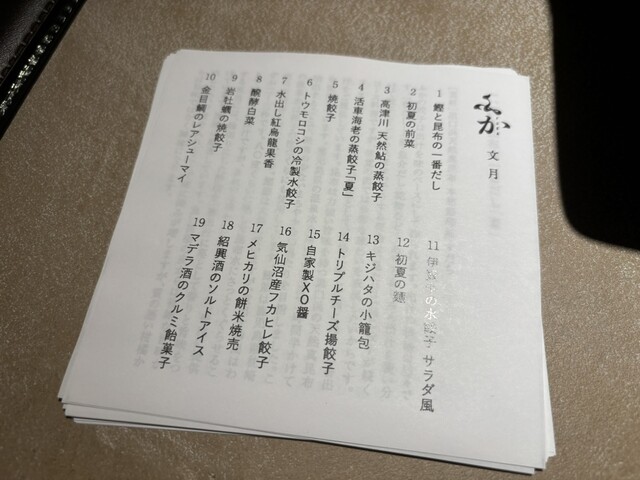 ふか
文月
1 鰹と昆布の一番だし
2 初夏の前菜
3 高津川 天然鮎の蒸餃子
4 活車海老の蒸餃子「夏」
5 焼餃子
6 トウモロコシの冷製水餃子
7 水出し紅烏龍果香
8 醗酵白菜
9 岩牡蠣の焼餃子
10 金目鯛のレアシューマイ
11 の水餃子 サラダ風
12 初夏の
13 キジハタの小籠包
14 トリプルチーズ揚餃子
15 自家製XO醤
16 気仙沼産フカヒレ餃子
17 メヒカリの餅米焼売
18 紹興酒のソルトアイス
19 マデラ酒のクルミ飴菓子